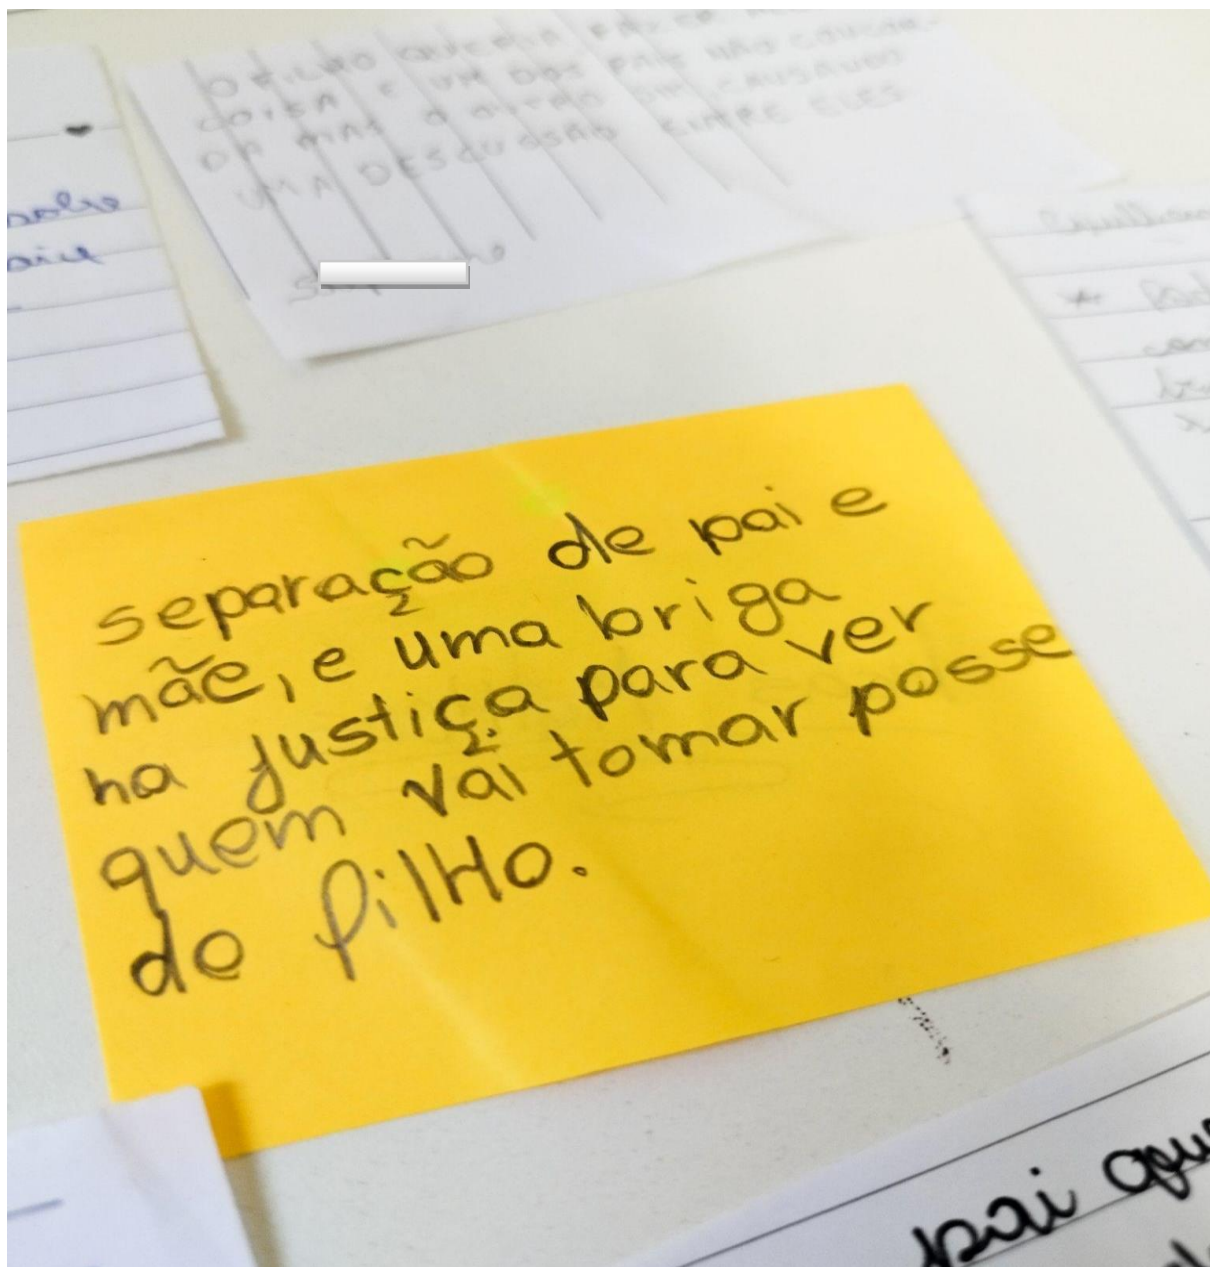 O FILHO QUERIA FAZER
COISA E UM DOS PAIS NÃO CONCOR
DA MAS O OUTRO SIM CAUSANDO
UMA DESCUSSÃO ENTRE ELES
separação de pai e
mãe, e uma briga
na justiça para ver
quem vai tomar posse
do filHo.
pai